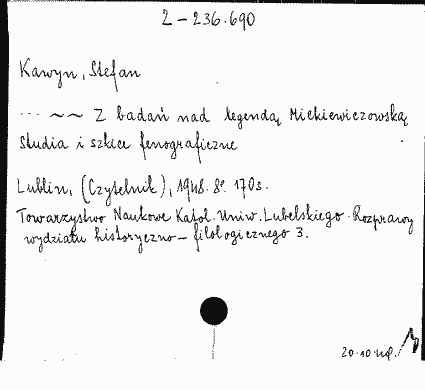 2-236.690
Kawyn, Stefan
... ~~ Z badań nad legendą Mickiewiczowską
Studia i szkice fenograficzne
Lublin, (Czytelnik), 1948. 8° 170s.
Towarzystwo Naukowe Katol. Uniw. Lubelskiego. Rozprawy
wydziału historyczno-filologicznego 3.